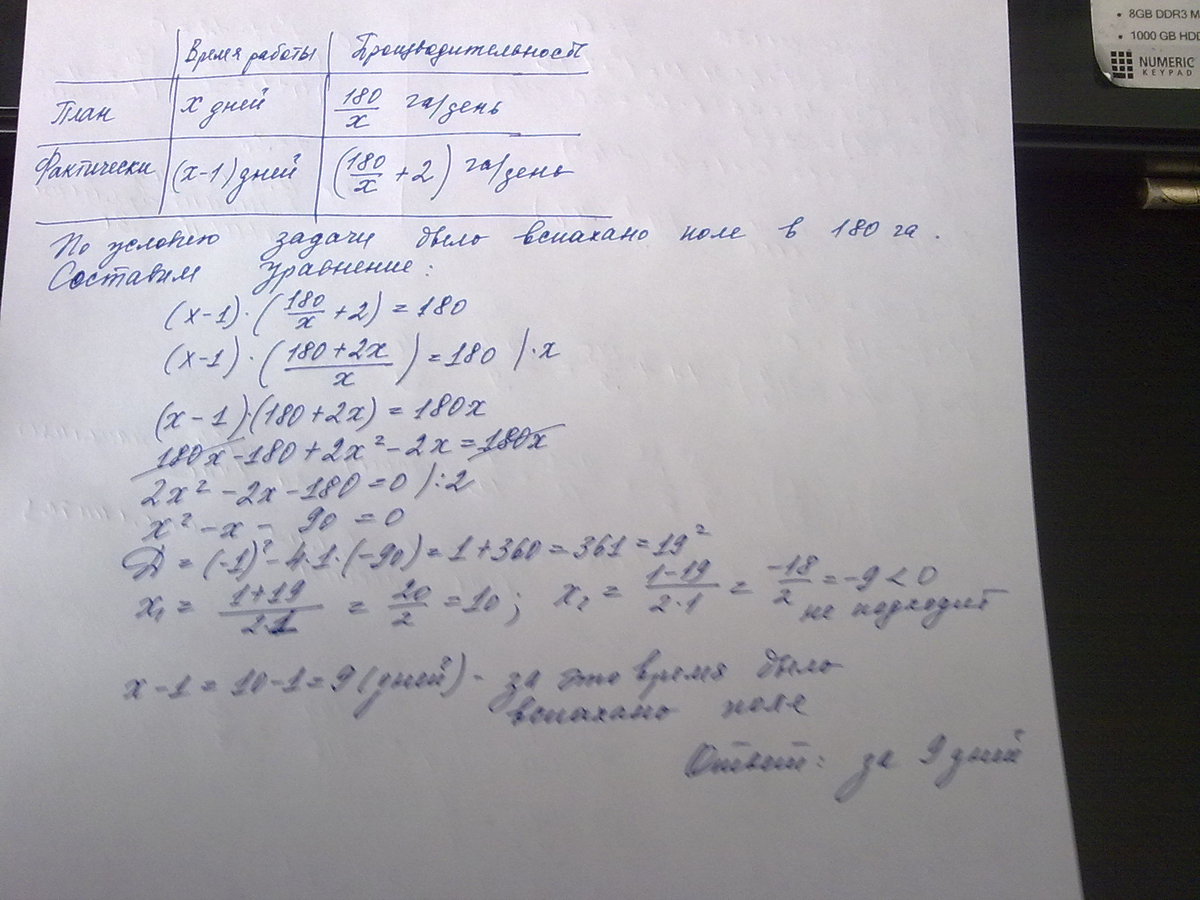 Время работы Производительность
План x дней 180/x га/день
Фактически (x-1) дней (180/x + 2) га/день
По условию задачи было вспахано поле в 180 га.
Составим уравнение:
(x-1)·(180/x + 2) = 180
(x-1)·((180+2x)/x) = 180 |·x
(x-1)·(180+2x) = 180x
180x - 180 + 2x² - 2x = 180x
2x² - 2x - 180 = 0 |:2
x² - x - 90 = 0
D = (-1)² - 4·1·(-90) = 1 + 360 = 361 = 19²
x₁ = (1+19)/(2·1) = 20/2 = 10; x₂ = (1-19)/(2·1) = -18/2 = -9 < 0
не подходит
x - 1 = 10 - 1 = 9 (дней) - за это время было
вспахано поле
Ответ: за 9 дней
8GB DDR3 M
1000 GB HDD
NUMERIC
KEYPAD